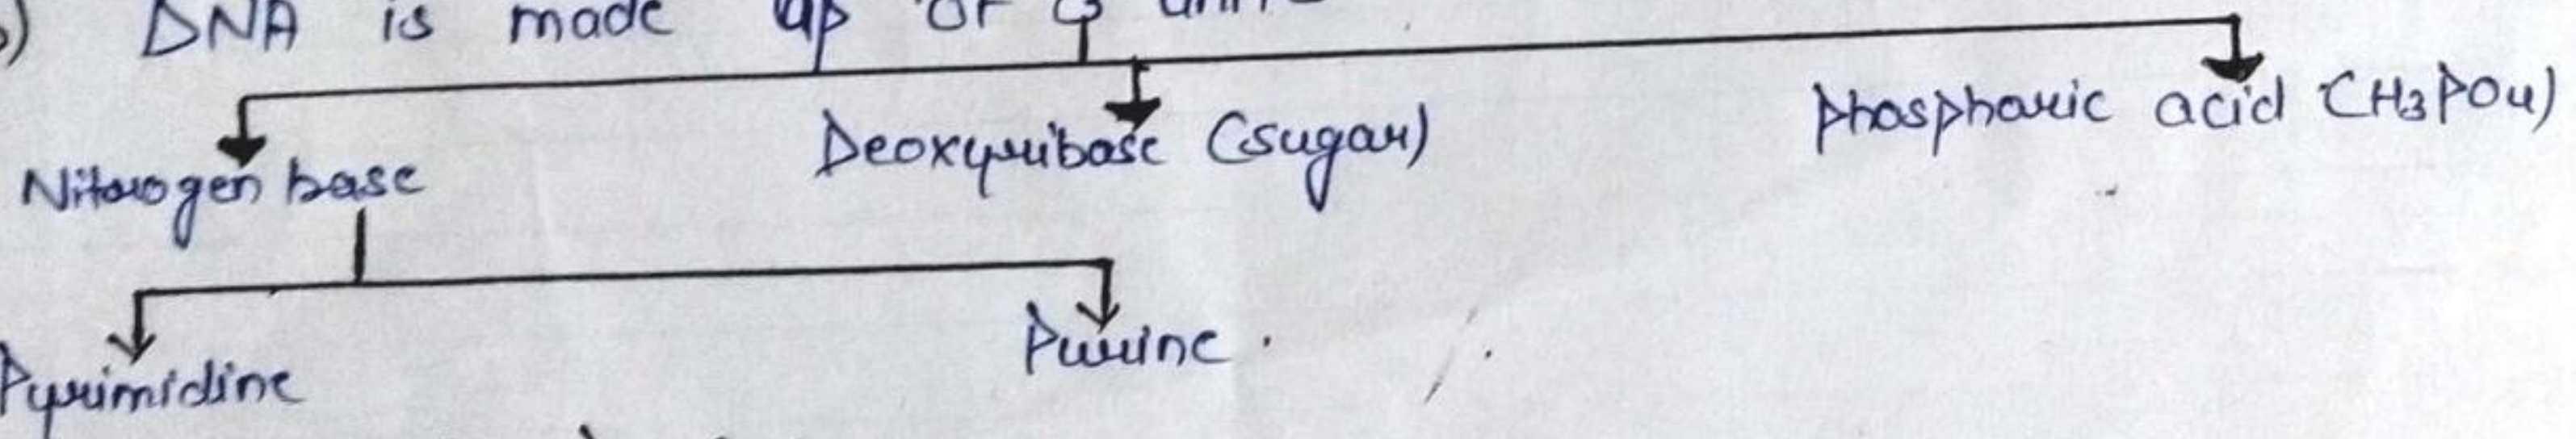 DNA is made up of 3 units
Nitrogen base Deoxyribose (sugar) Phosphoric acid (H3PO4)
Pyrimidine Purine.